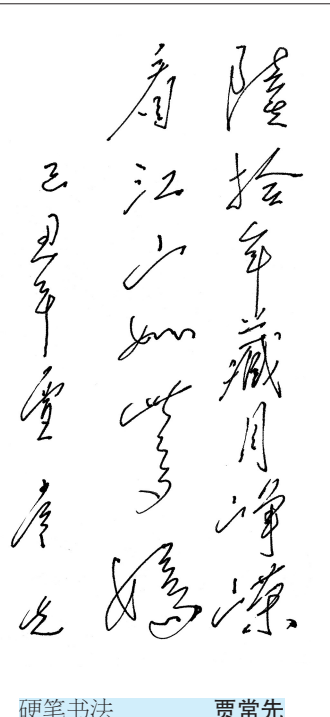 陸拾年歲月峥嵘
看江山如此多嬌
己丑年賈常先
硬笔书法 贾常先